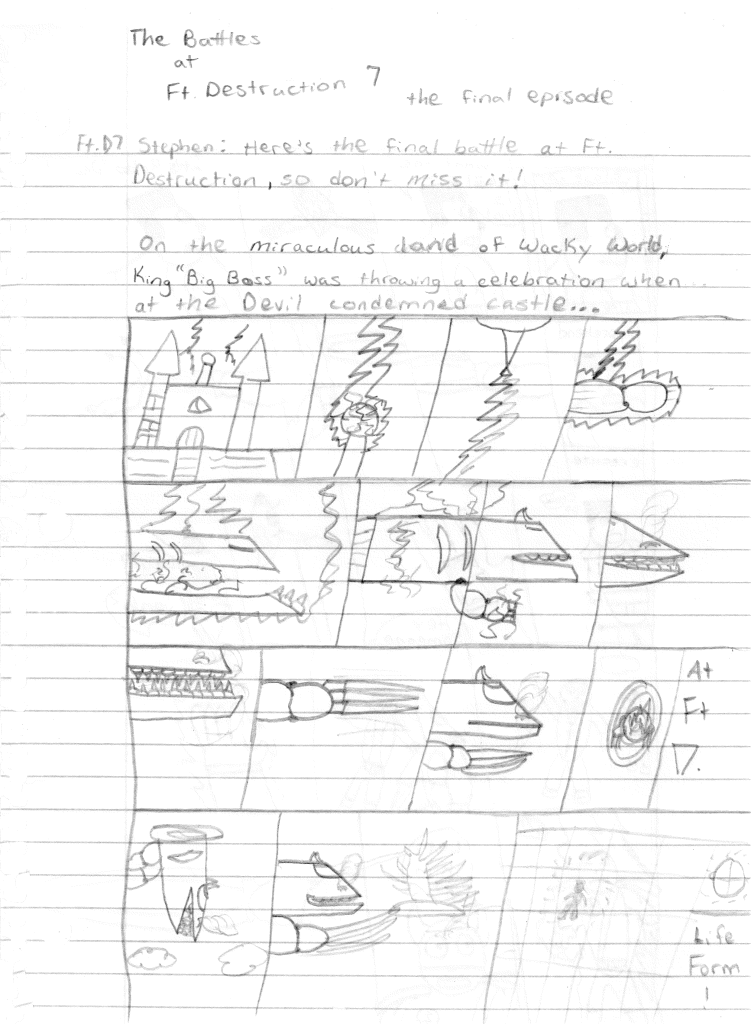 The Battles
at
Ft. Destruction 7
the final episode
Ft.D7 Stephen: Here's the final battle at Ft.
Destruction, so don't miss it!
On the miraculous land of Wacky World,
King "Big Boss" was throwing a celebration when...
at the Devil condemned castle...
At
Ft
D.
Life
Form
!